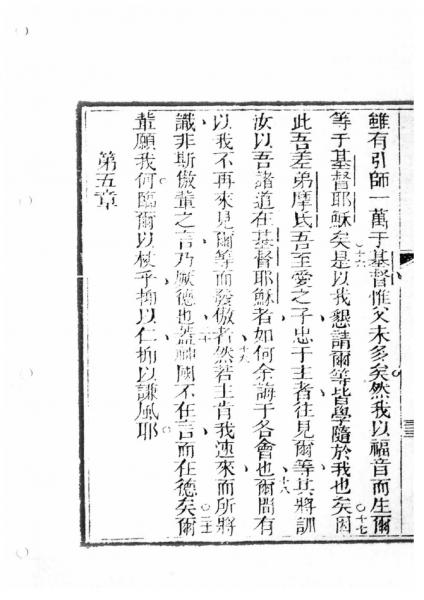 雖有引師一萬于基督惟父未多矣然我以福音而生爾
等于基督耶穌矣十六是以我懇請爾等皆學隨於我也矣十七因
此吾差弟摩氏吾至愛之子忠于主者往見爾等其將訓
汝以吾諸道在基督耶穌者如何余誨于各會也十八爾間有
以我不再來見爾等而發傲者十九然若主肯我速來而所將
識非斯傲輩之言乃厥德也二十蓋神國不在言而在德矣二十一爾
輩願我何臨爾以杖乎抑以仁抑以謙風耶
第五章